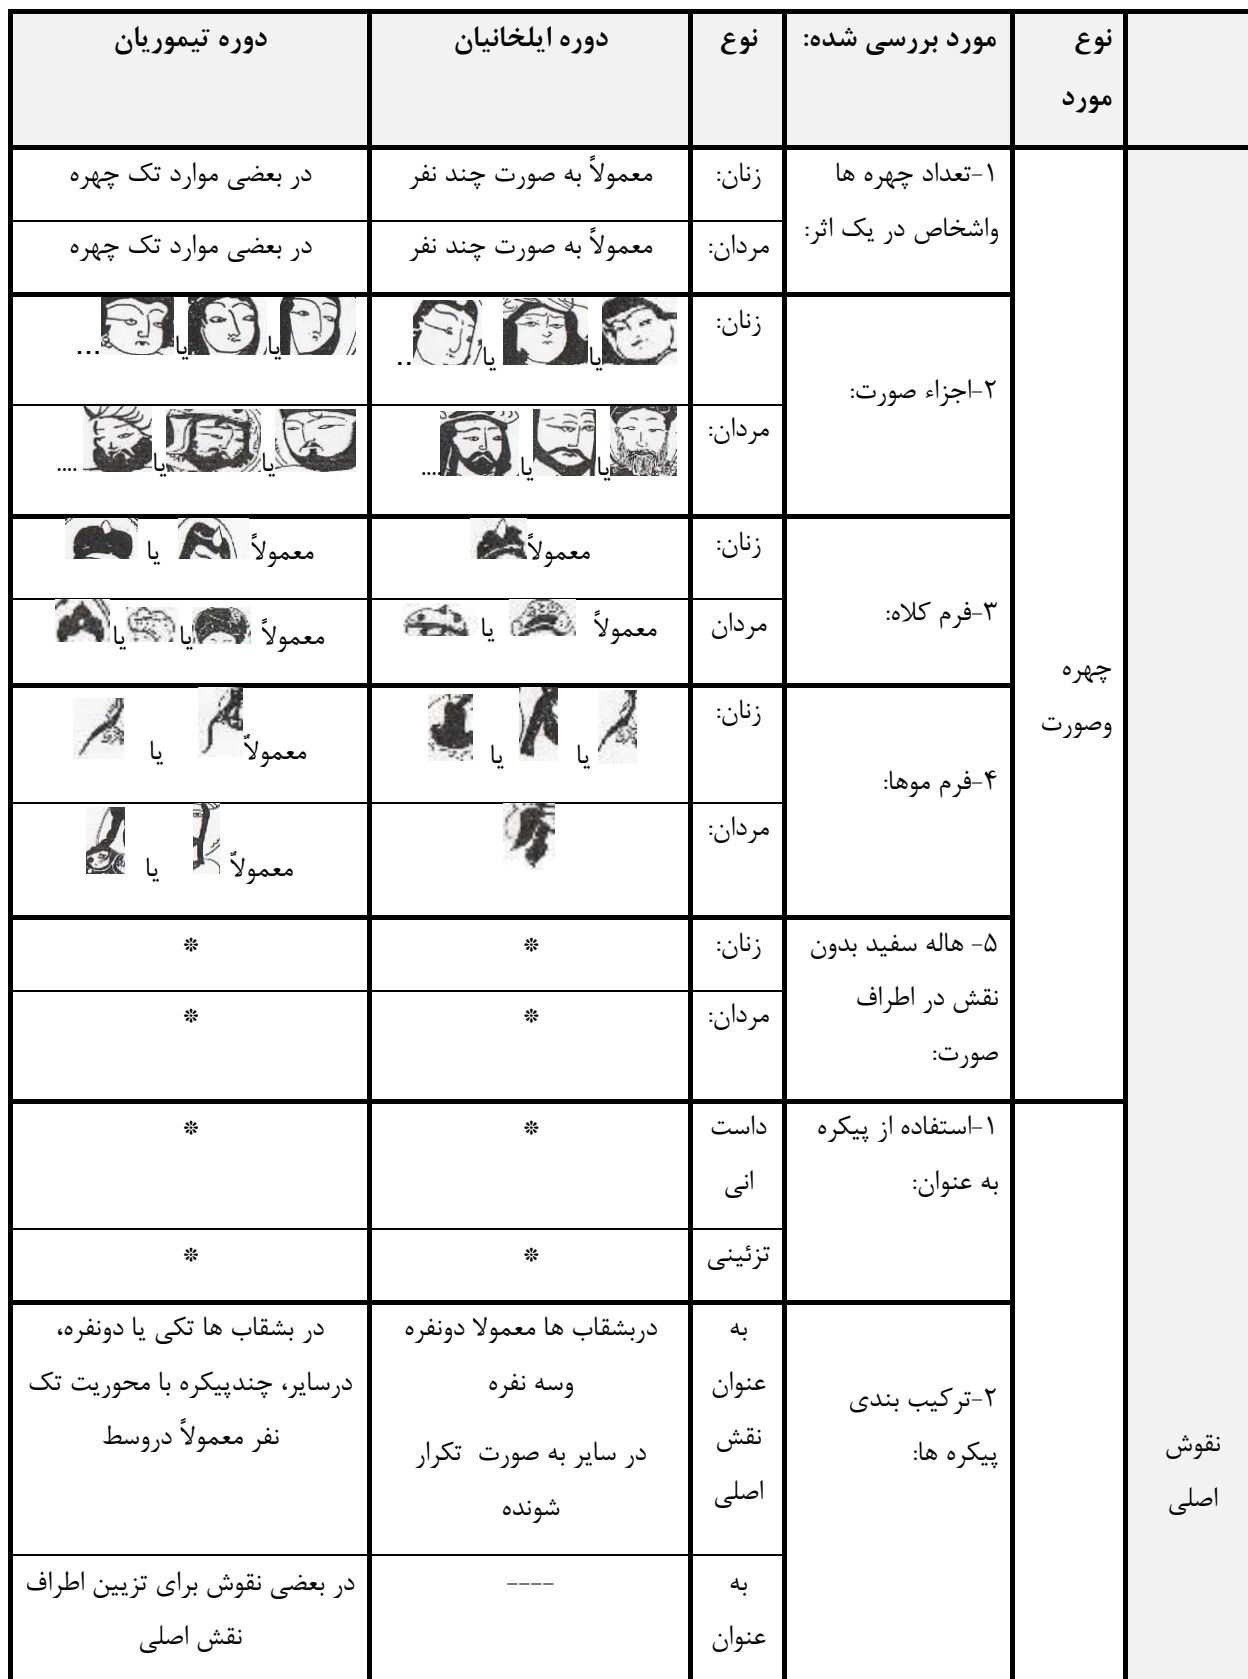 نوع
مورد
مورد بررسی شده:
نوع
دوره ایلخانیان
دوره تیموریان
نقوش
اصلی
چهره
وصورت
۱-تعداد چهره ها
واشخاص در یک اثر:
زنان:
معمولاً به صورت چند نفر
در بعضی موارد تک چهره
مردان:
معمولاً به صورت چند نفر
در بعضی موارد تک چهره
۲-اجزاء صورت:
زنان:
یا یا ..
یا یا ...
مردان:
یا یا ....
یا یا ....
۳-فرم کلاه:
زنان:
معمولاً
معمولاً یا
مردان
معمولاً یا
معمولاً یا یا
۴-فرم موها:
زنان:
یا یا
معمولاً یا
مردان:
معمولاً یا
۵- هاله سفید بدون
نقش در اطراف
صورت:
زنان:
*
*
مردان:
*
*
۱-استفاده از پیکره
به عنوان:
داست
انی
*
*
تزئینی
*
*
۲-ترکیب بندی
پیکره ها:
به
عنوان
نقش
اصلی
دربشقاب ها معمولا دونفره
وسه نفره
در سایر به صورت تکرار
شونده
در بشقاب ها تکی یا دونفره،
درسایر، چندپیکره با محوریت تک
نفر معمولاً دروسط
به
عنوان
----
در بعضی نقوش برای تزیین اطراف
نقش اصلی